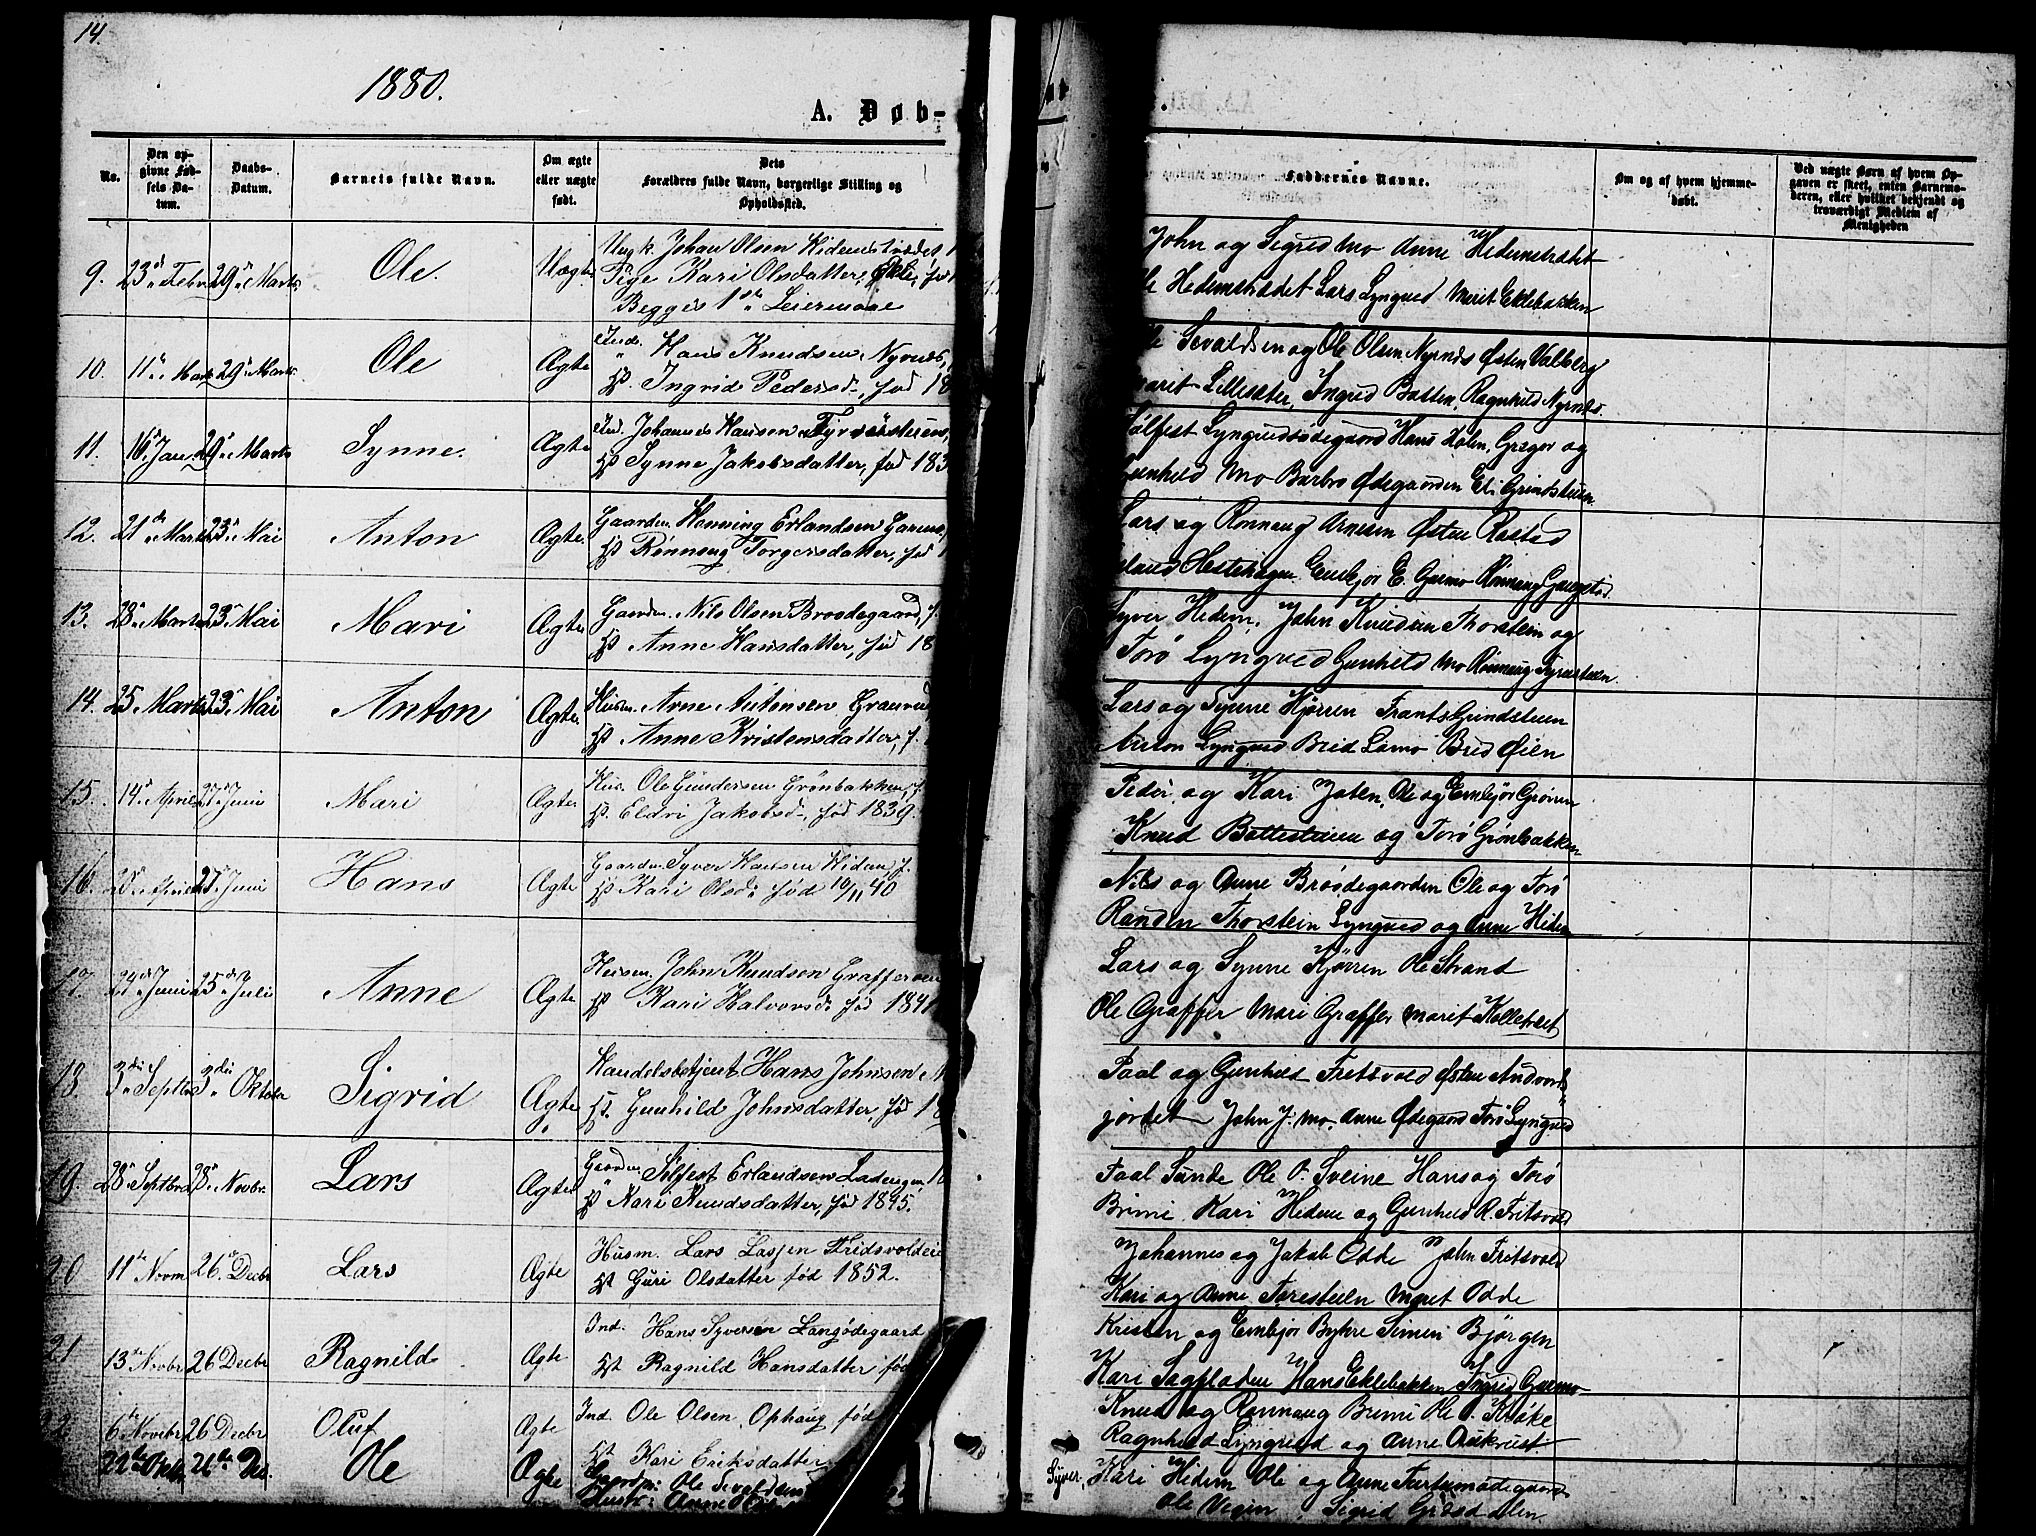 14.
1880.
A. Døb-
No.
Den op-
givne Fød-
sels Da-
tum.
Daabs-
Datum.
Barnets fulde Navn.
Om ægte
eller uægte
født.
Dets
Forældres fulde Navn, borgerlige Stilling og
Opholdssted.
Faddernes Navne.
Om og af hvem hjemme-
døbt.
Ved uægte Børn af hvem Op-
gaven er skeet, enten Barnemo-
deren, eller hvilket bekjendt og
troværdigt Medlem af
Menigheden
9. 23d Febr 29d Marts Ole. Uægte Ungk. Johan Olsen
Pige Kari Olsdatter, Ekle, fød
Begges 1ste Leiermaal
John og Sigrid Mo Anne Hedemstrædet
Hedemstrædet Lars Lyngved Marit Eklebakken
10. 11te Marts 29d Marts Ole Ægte Ind. Hans Knudsen Nyrnæs,
H. Ingrid Pedersd., fød 18
Sevaldsen og Ole Olsen Nyrnæs Østen Valberg
Marit Lillesæter, Ingrid Batten, Ragnhild Nyrnæs.
11. 16d Jan. 29d Marts Synne. Ægte Ind. Johannes Hansen
H. Synne Jakobsdatter, fød 183
Sølfest Lyngvedsødegaard Hans Holen, Gregor og
Gunhild Mo Barbro Ødegaarden Eli Grindsteen
12. 21de Marts 23d Mai Anton Ægte Gaardm. Henning Erlandsen Garmo,
H. Rønnaug Torgersdatter, fød
Lars og Rønnaug Arnesen Østen Rusten
Hestehagen Embjør E. Garmo Rønnaug
13. 28d Marts 23d Mai Mari Ægte Gaardm. Nils Olsen Brosdegaard, f.
H. Anne Hansdatter, fød 18
Syver Hedem, John Knudsen Thorstein og
Torø Lyngved Gunhild Mo Rønnaug
14. 25 Marts 23d Mai Anton Ægte Husm. Arne
H. Anne Kristensdatter, f.
Lars og Synne Kjørren Frants Grindsteen
Anton Lyngved Brid Lømo Brid Øien
15. 14d April 27d Juni Mari Ægte Hus. Ole Gundersen Grønbakken, f.
H. Eldri Jakobsd., fød 1839.
Peder og Kari Joten, Ole og Embjør Grøven
Knud og Torø Grønbakken
16. April 27d Juni Hans Ægte Gaardm. Syver Hansen Hidem, f.
H. Kari Olsd. fød 10/11 40
Nils og Anne Brosdegaarden Ole og Torø
Randen Thorstein Lyngved og Anne Hidem
17. 24d Juni 25d Juli Anne Ægte Husm. John Knudsen Grafferøen
H. Kari Halvorsd. fød 1841
Lars og Synne Kjørren Ole Strand
Ole Graffer Mari Graffer Marit Kolletræet
18. 3die Septbr 3die Oktober Sigrid Ægte Handelsbetjent Hans Johnsen M
H. Gunhild Johnsdatter, fød 18
Paal og Gunhild Fritsvold Østen Andvords-
jordet John J. Mo Anne Ødegaard Torø Lyngved
19 28d Septbr 28d Novbr. Lars Ægte Gaardm. Sølfest Erlandsen
H. Kari Knudsdatter, fød 1845.
Paal Sunde Ole O. Sveine Hans og Torø
Brimi Kari Hedem og Gunhild R. Fritsvold
20 11te Novm 26de Decbr Lars Ægte Husm. Lars Larsen Fridsvoldeie
H Guri Olsdatter fød 1852.
Johannes og Jakob Odde John Fritsvold
Kari og Anne Marit Odde
21 13de Novbr 26 Decbr Ragnild Ægte Ind. Hans Syversen Langødegaard
H Ragnild Hansdatter fød
Kristen og Embjør Byhre Simen Bjørgen
Kari Sagfladen Hans Eklebakken Ingrid Garmo
22 6te Novebr 26 Decbr Oluf Ægte Ind. Ole Olsen Ophaug fød
H Kari Eriksdatter
Knud og Rønnaug Brimi Ole O. Kroke
Ragnhild Lyngved og Anne Aukrust
22de Oktb. 26de De. Ole Ægte Gaardm. Ole Sevaldsen
Hustr: Anne
Syver, Kari Hidem Ole og Anne
Ole Vegen, Sigrid Græsdalen